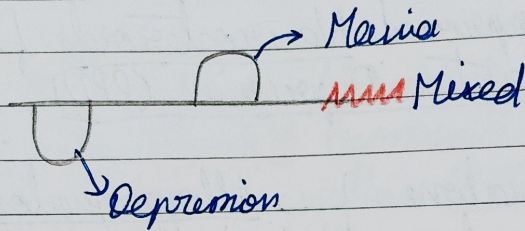 Mania
Mixed
Depression